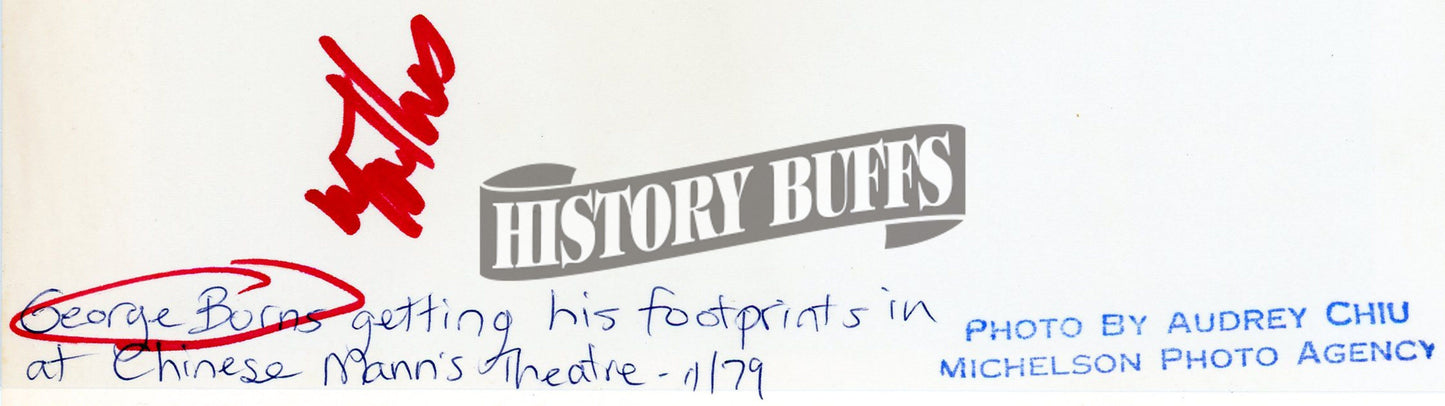 HISTORY BUFFS
George Burns getting his footprints in
at Chinese Mann's Theatre - 11/79
PHOTO BY AUDREY CHIU
MICHELSON PHOTO AGENCY